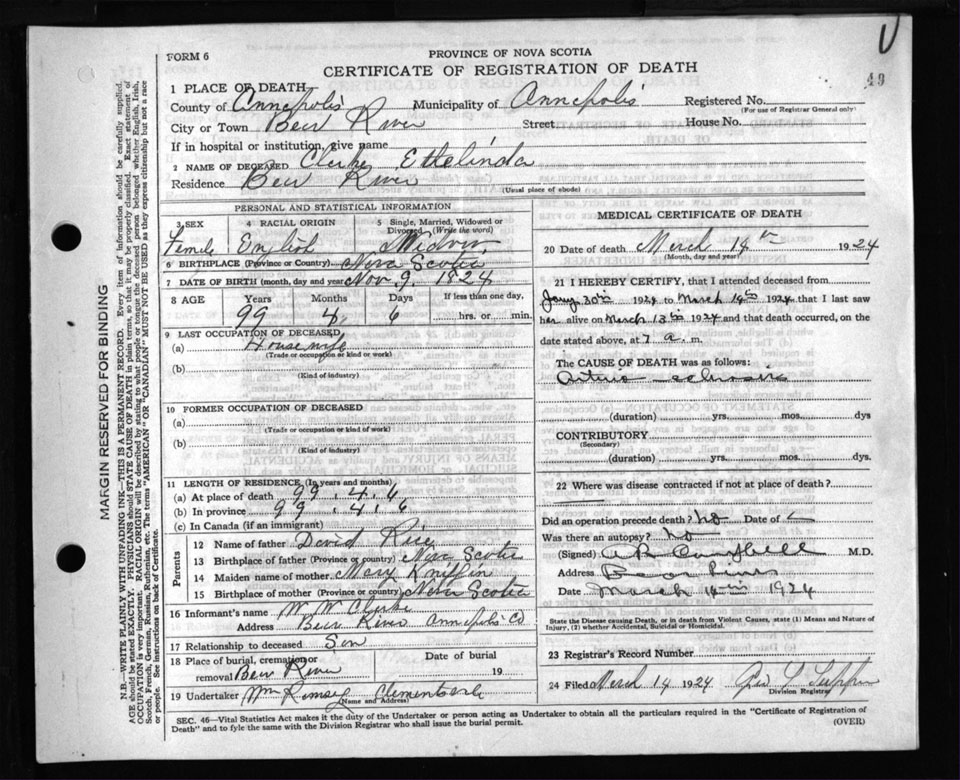 FORM 6
PROVINCE OF NOVA SCOTIA
CERTIFICATE OF REGISTRATION OF DEATH
49
1 PLACE OF DEATH
County of Annapolis Municipality of Annapolis Registered No.
(For use of Registrar General only)
City or Town Bear River Street House No.
If in hospital or institution, give name
2 NAME OF DECEASED Clarke Ethelinda
Residence Bear River
(Usual place of abode)
PERSONAL AND STATISTICAL INFORMATION
3 SEX 4 RACIAL ORIGIN 5 Single, Married, Widowed or Divorced (Write the word)
Female English Widow
6 BIRTHPLACE (Province or Country) Nova Scotia
7 DATE OF BIRTH (month, day and year) Nov. 9, 1824
8 AGE Years Months Days If less than one day,
99 4 6 hrs. or min.
9 LAST OCCUPATION OF DECEASED
(a) House wife
(Trade or occupation or kind of work)
(b)
(Kind of industry)
10 FORMER OCCUPATION OF DECEASED
(a)
(Trade or occupation or kind of work)
(b)
(Kind of industry)
11 LENGTH OF RESIDENCE (In years and months)
(a) At place of death 99. 4. 6
(b) In province 99. 4. 6
(c) In Canada (if an immigrant)
Parents
12 Name of father David Rice
13 Birthplace of father (Province or country) Nova Scotia
14 Maiden name of mother Mary Kniffin
15 Birthplace of mother (Province or country) Nova Scotia
16 Informant's name W. W. Clarke
Address Bear River Annapolis Co
17 Relationship to deceased Son
18 Place of burial, cremation or removal Bear River Date of burial 19
19 Undertaker Wm Ramsey Clementsvale
(Name and Address)
MEDICAL CERTIFICATE OF DEATH
20 Date of death March 1924
(Month, day and year)
21 I HEREBY CERTIFY, that I attended deceased from
Jany 30th 1924 to March 14th 1924 that I last saw
her alive on March 13th 1924 and that death occurred, on the
date stated above, at 7 a. m.
The CAUSE OF DEATH was as follows:
Arterio - sclerosis
(duration) yrs. mos. dys
CONTRIBUTORY
(Secondary)
(duration) yrs. mos. dys.
22 Where was disease contracted if not at place of death?
Did an operation precede death? No Date of
Was there an autopsy? No
(Signed) Campbell M.D.
Address Bear River
Date March 14th 1924
State the Disease causing Death, or in death from Violent Causes, state (1) Means and Nature of
Injury, (2) whether Accidental, Suicidal or Homicidal.
23 Registrar's Record Number
24 Filed March 14 1924 Geo
Division Registrar
SEC. 46—Vital Statistics Act makes it the duty of the Undertaker or person acting as Undertaker to obtain all the particulars required in the "Certificate of Registration of
Death" and to fyle the same with the Division Registrar who shall issue the burial permit. (OVER)
MARGIN RESERVED FOR BINDING
N.B.—WRITE PLAINLY WITH UNFADING INK—THIS IS A PERMANENT RECORD. Every item of information should be carefully supplied.
AGE should be stated EXACTLY. PHYSICIANS should STATE CAUSE OF DEATH in plain terms, so that it may be properly classified. Exact statement of
OCCUPATION is very important. RACIAL ORIGIN will be described by stating to what people or tongue the deceased person belonged whether English, Irish,
Scotch, French, German, Russian, Ruthenian, etc. The terms "AMERICAN" OR "CANADIAN" MUST NOT BE USED as they express citizenship but not a race
or people. See instructions on back of Certificate.